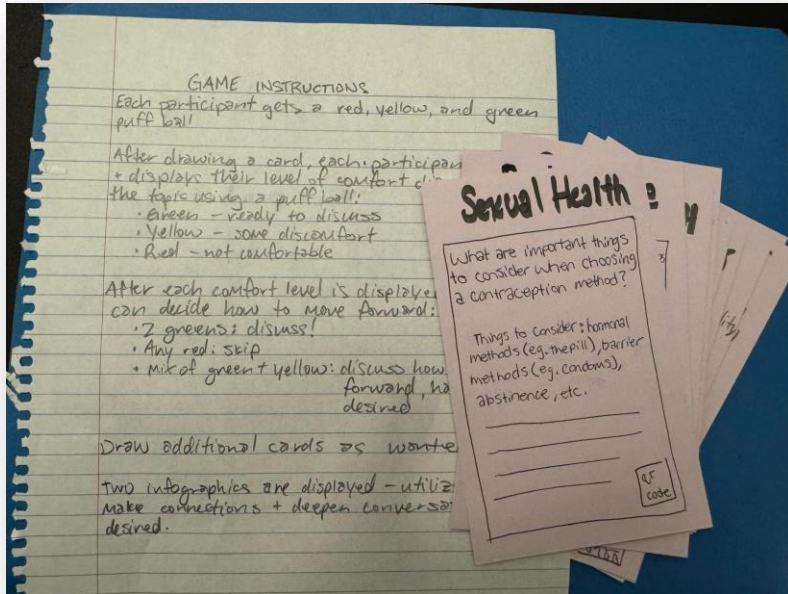 GAME INSTRUCTIONS
Each participant gets a red, yellow, and green
puff ball
After drawing a card, each participan
+ displays their level of comfort
the topic using a puff ball:
• Green – ready to discuss
• Yellow – some discomfort
• Red – not comfortable
After each comfort level is displaye
can decide how to move forward:
• 2 greens: discuss!
• Any red: skip
• Mix of green + yellow: discuss how
forward,
desired
Draw additional cards as wante
Two infographics are displayed – utiliz
make connections + deepen conversa
desired.
Sexual Health
What are important things
to consider when choosing
a contraception method?
Things to consider: hormonal
methods (eg. the pill), barrier
methods (eg. condoms),
abstinence, etc.
QR
code